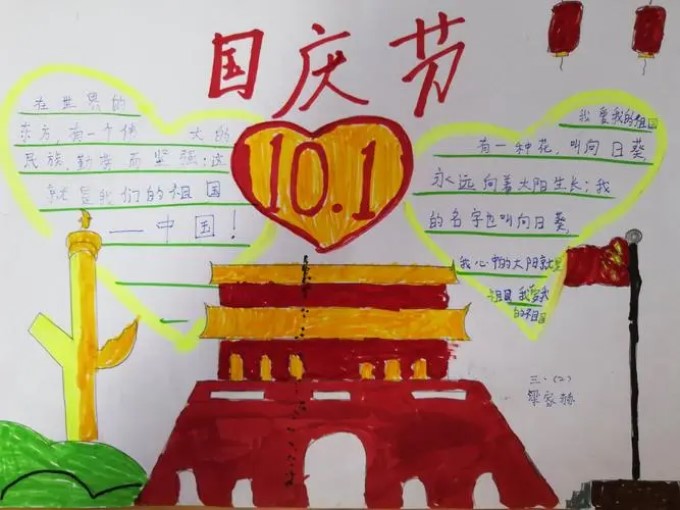 国庆节
10.1
在世界的
东方,有一个伟 大的
民族,勤劳而坚强;这
就是我们的祖国
——中国!
我爱我的祖国
有一种花,叫向日葵,
永远向着太阳生长;我
的名字也叫向日葵,
我心中的太阳就是
祖国,我爱我
的祖国
三.(2)